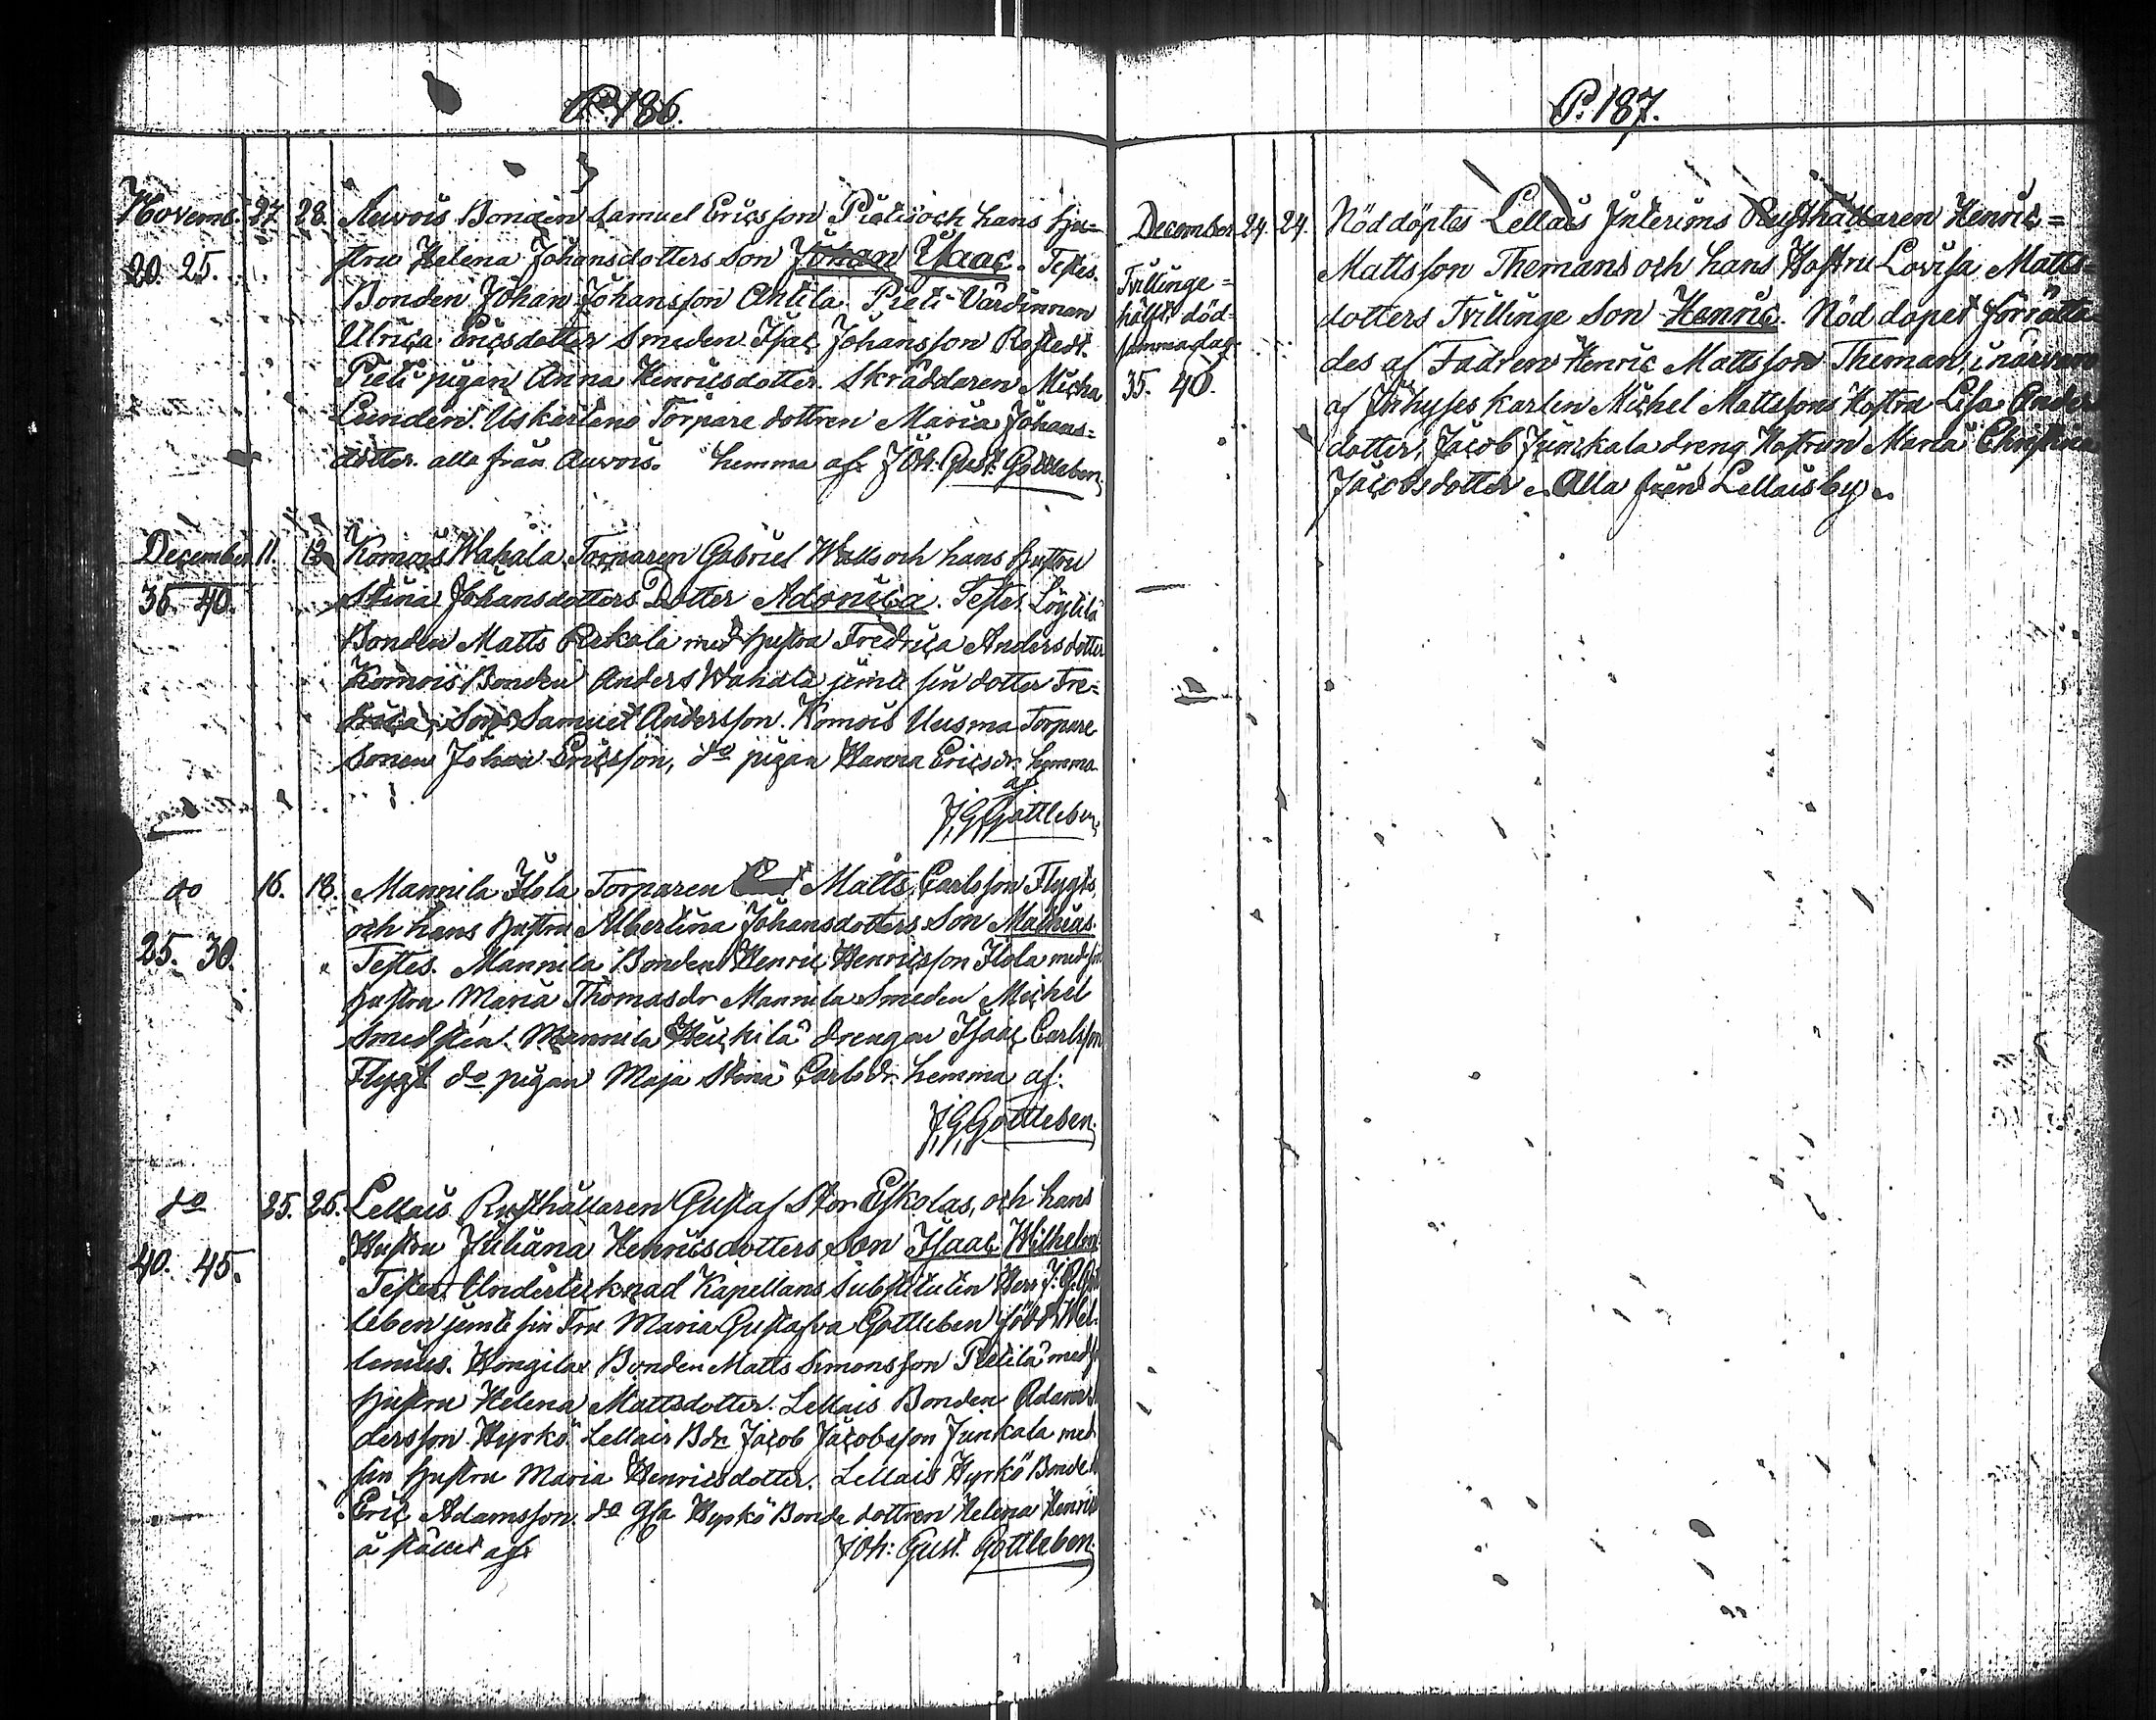 P. 186.
Novemb. 27 28. Auvois Bonden Samuel Ericsson Pietis och hans Hu=
stru Helena Johansdotters Son Johan Isaac. Testes.
20. 25.
Bonden Johan Johansson Anttila. Pieti Värdinnan
Ulrica Ericsdotter Smeden Isac Johansson Rostedt.
Pieti pigan Anna Henricsdotter. Skräddaren Micha
Lundén. Uskartano Torpare dottren Maria Johans=
dotter. alla från Auvois. hemma af: Joh: Gust. Gottleben.
December 11. 12 Komois Wahala Torparen Gabriel Walls och hans Hustru
35. 40.
Stina Johansdotters Dotter Adonica. Testes. Löytilä
Bonden Matts Rekola med Hustru Fredrica Andersdotter
Komois Bonden Anders Wahala jemte sin dotter Fre=
drica, Son Samuel Andersson. Komois Uusma Torpare
Sonen Johan Ericsson, do pigan Hanna Ericsdr. hemma
af
J. G. Gottleben.
do 16. 18. Mannila Ilola Torparen Matts Carlsson Flygts,
och hans Hustru Albertina Johansdotters Son Mathias.
25. 30.
Testes. Mannila Bonden Henric Henricsson Ilola med sin
Hustru Maria Thomasdr Mannila Smeden Michel
Smedsten. Mannila Heickilä drengen Isaac Carlsson
Flygt do pigan Maja Stina Carlsdr. hemma af:
J. G. Gottleben.
do 25. 26. Lellais Rusthållaren Gustaf Stor Eskolas, och hans
Hustru Juliana Henricsdotters Son Isaac Wilhelm
40. 45.
Testes. Undertecknad Kapellans Substituten Herr J. G. Gott
leben jemte sin Fru Maria Gustafva Gottleben född Wel=
lenius. Bonden Matts Simonsson Pietilä med
Hustru Helena Mattsdotter. Lellais Bonden Adam
dersson Hyrkö. Lellais Bdn Jacob Jacobsson Junkala med
sin Hustru Maria Henricsdotter. Lellais Hyrkö Bonde
Eric Adamsson. do Hyrkö Bonde dottren Helena Henrics
å stället af: Joh: Gust. Gottleben.
P. 187.
December 24. 24. Nöddöptes Lellais Interims Rusthållaren Henric=
Mattsson Themans och hans Hustru Lovisa Matts=
Tvillinge=
hälft död=
samma dag.
35. 40.
dotters Tvillinge Son Henric. Nöd dopet förrätta
des af Fadren Henric Mattsson Themans, i närvaro
af Inhyses karlen Michel Mattssons Hustru Lisa Anders
dotter, Jacob Junkala dreng Hustrun Maria Christina
Jacobsdotter. Alla från Lellais by.